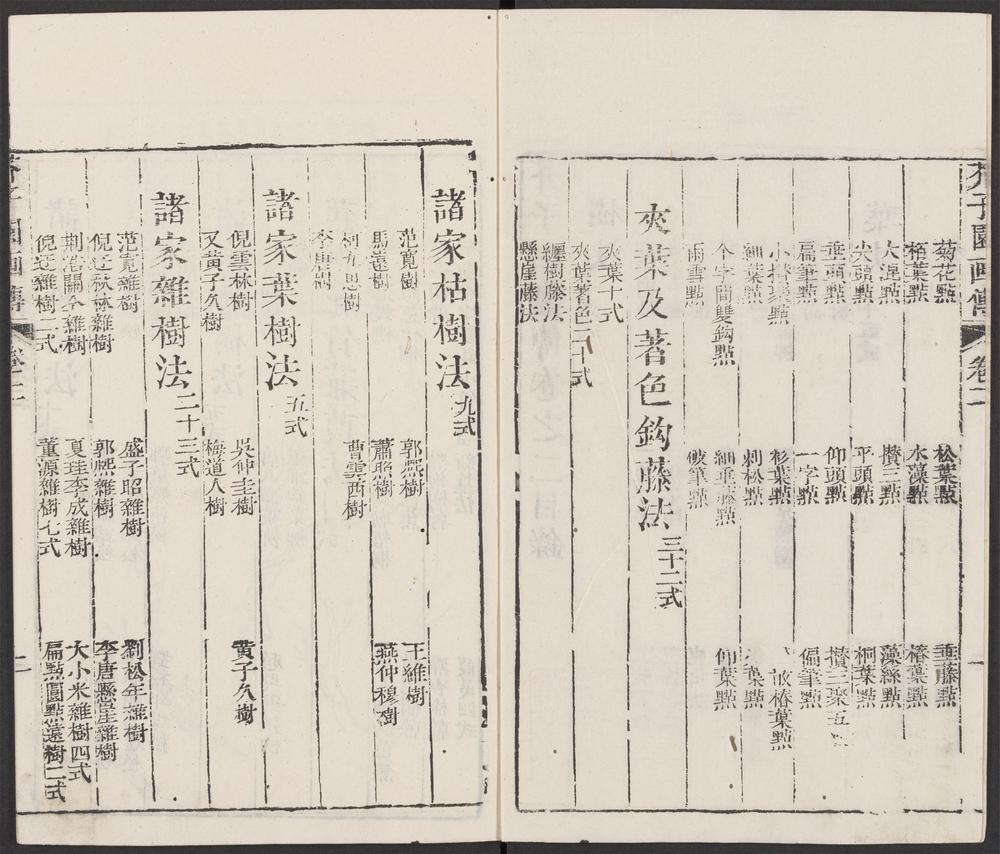 芥子園画傳 卷二 一
菊花點 松葉點 垂藤點
梧葉點 水藻點 椿葉點
大混點 攢三點 藻絲點
尖頭點 平頭點 桐葉點
垂頭點 仰頭點 攢三聚五
扁筆點 一字點 偏筆點
小攢聚點 杉葉點 椿葉點
細葉點 刺松點 葉點
个字間雙鈎點 細垂藤點 仰葉點
雨雪點 破筆點
夾葉及著色鈎藤法 三十二式
夾葉十式
夾葉著色二十式
纏樹藤法
懸崖藤法
諸家枯樹法 九式
范寬樹 郭熙樹 王維樹
馬遠樹 蕭照樹 燕仲穆樹
柯九思樹 曹雲西樹
李唐樹
諸家葉樹法 五式
倪雲林樹 吳仲圭樹 黃子久樹
又黃子久樹 梅道人樹
諸家雜樹法 二十三式
范寬雜樹 盛子昭雜樹 劉松年雜樹
倪迂秋林雜樹 郭熙雜樹 李唐懸崖雜樹
荆浩關仝雜樹 夏珪李成雜樹 大小米雜樹四式
倪迂雜樹二式 董源雜樹七式 扁點圓點遠樹二式
芥子園画傳 卷二 二